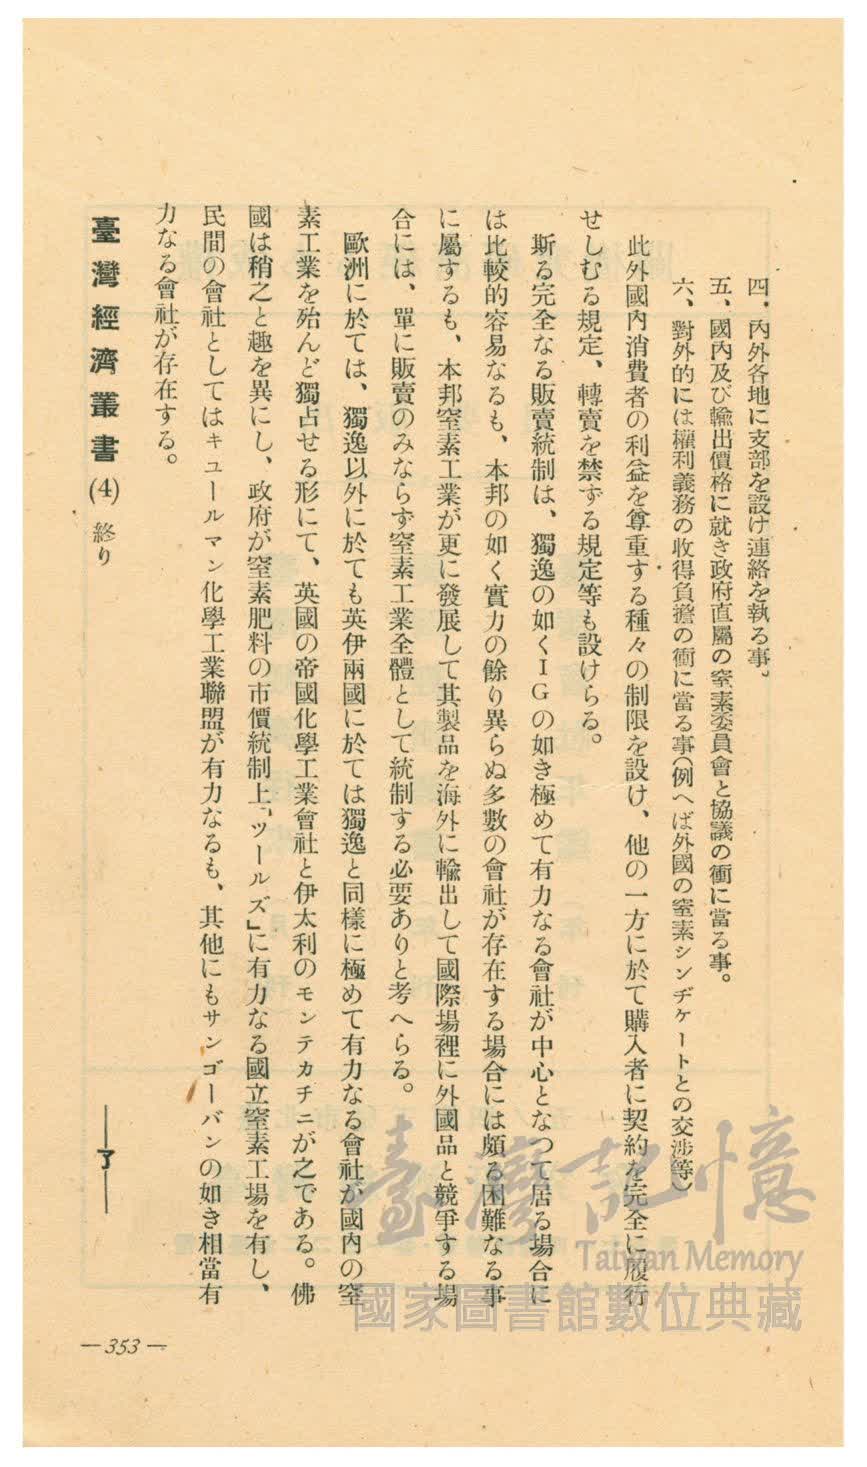 四、內外各地に支部を設け連絡を執る事。
五、國內及び輸出價格に就き政府直屬の窒素委員會と協議の衝に當る事。
六、對外的には權利義務の收得負擔の衝に當る事(例へば外國の窒素シンヂケートとの交涉等)
此外國內消費者の利益を尊重する種々の制限を設け、他の一方に於て購入者に契約を完全に履行
せしむる規定、轉賣を禁ずる規定等も設けらる。
斯る完全なる販賣統制は、獨逸の如くIGの如き極めて有力なる會社が中心となつて居る場合に
は比較的容易なるも、本邦の如く實力の餘り異らぬ多數の會社が存在する場合には頗る困難なる事
に屬するも、本邦窒素工業が更に發展して其製品を海外に輸出して國際場裡に外國品と競爭する場
合には、單に販賣のみならず窒素工業全體として統制する必要ありと考へらる。
歐洲に於ては、獨逸以外に於ても英伊兩國に於ては獨逸と同樣に極めて有力なる會社が國內の窒
素工業を殆んど獨占せる形にて、英國の帝國化學工業會社と伊太利のモンテカチニが之である。佛
國は稍之と趣を異にし、政府が窒素肥料の市價統制上「ツールズ」に有力なる國立窒素工場を有し、
民間の會社としてはキユールマン化學工業聯盟が有力なるも、其他にもサンゴーバンの如き相當有
力なる會社が存在する。
臺灣經濟叢書(4) 終り
——了——
—353—
臺灣記憶
Taiwan Memory
國家圖書館數位典藏